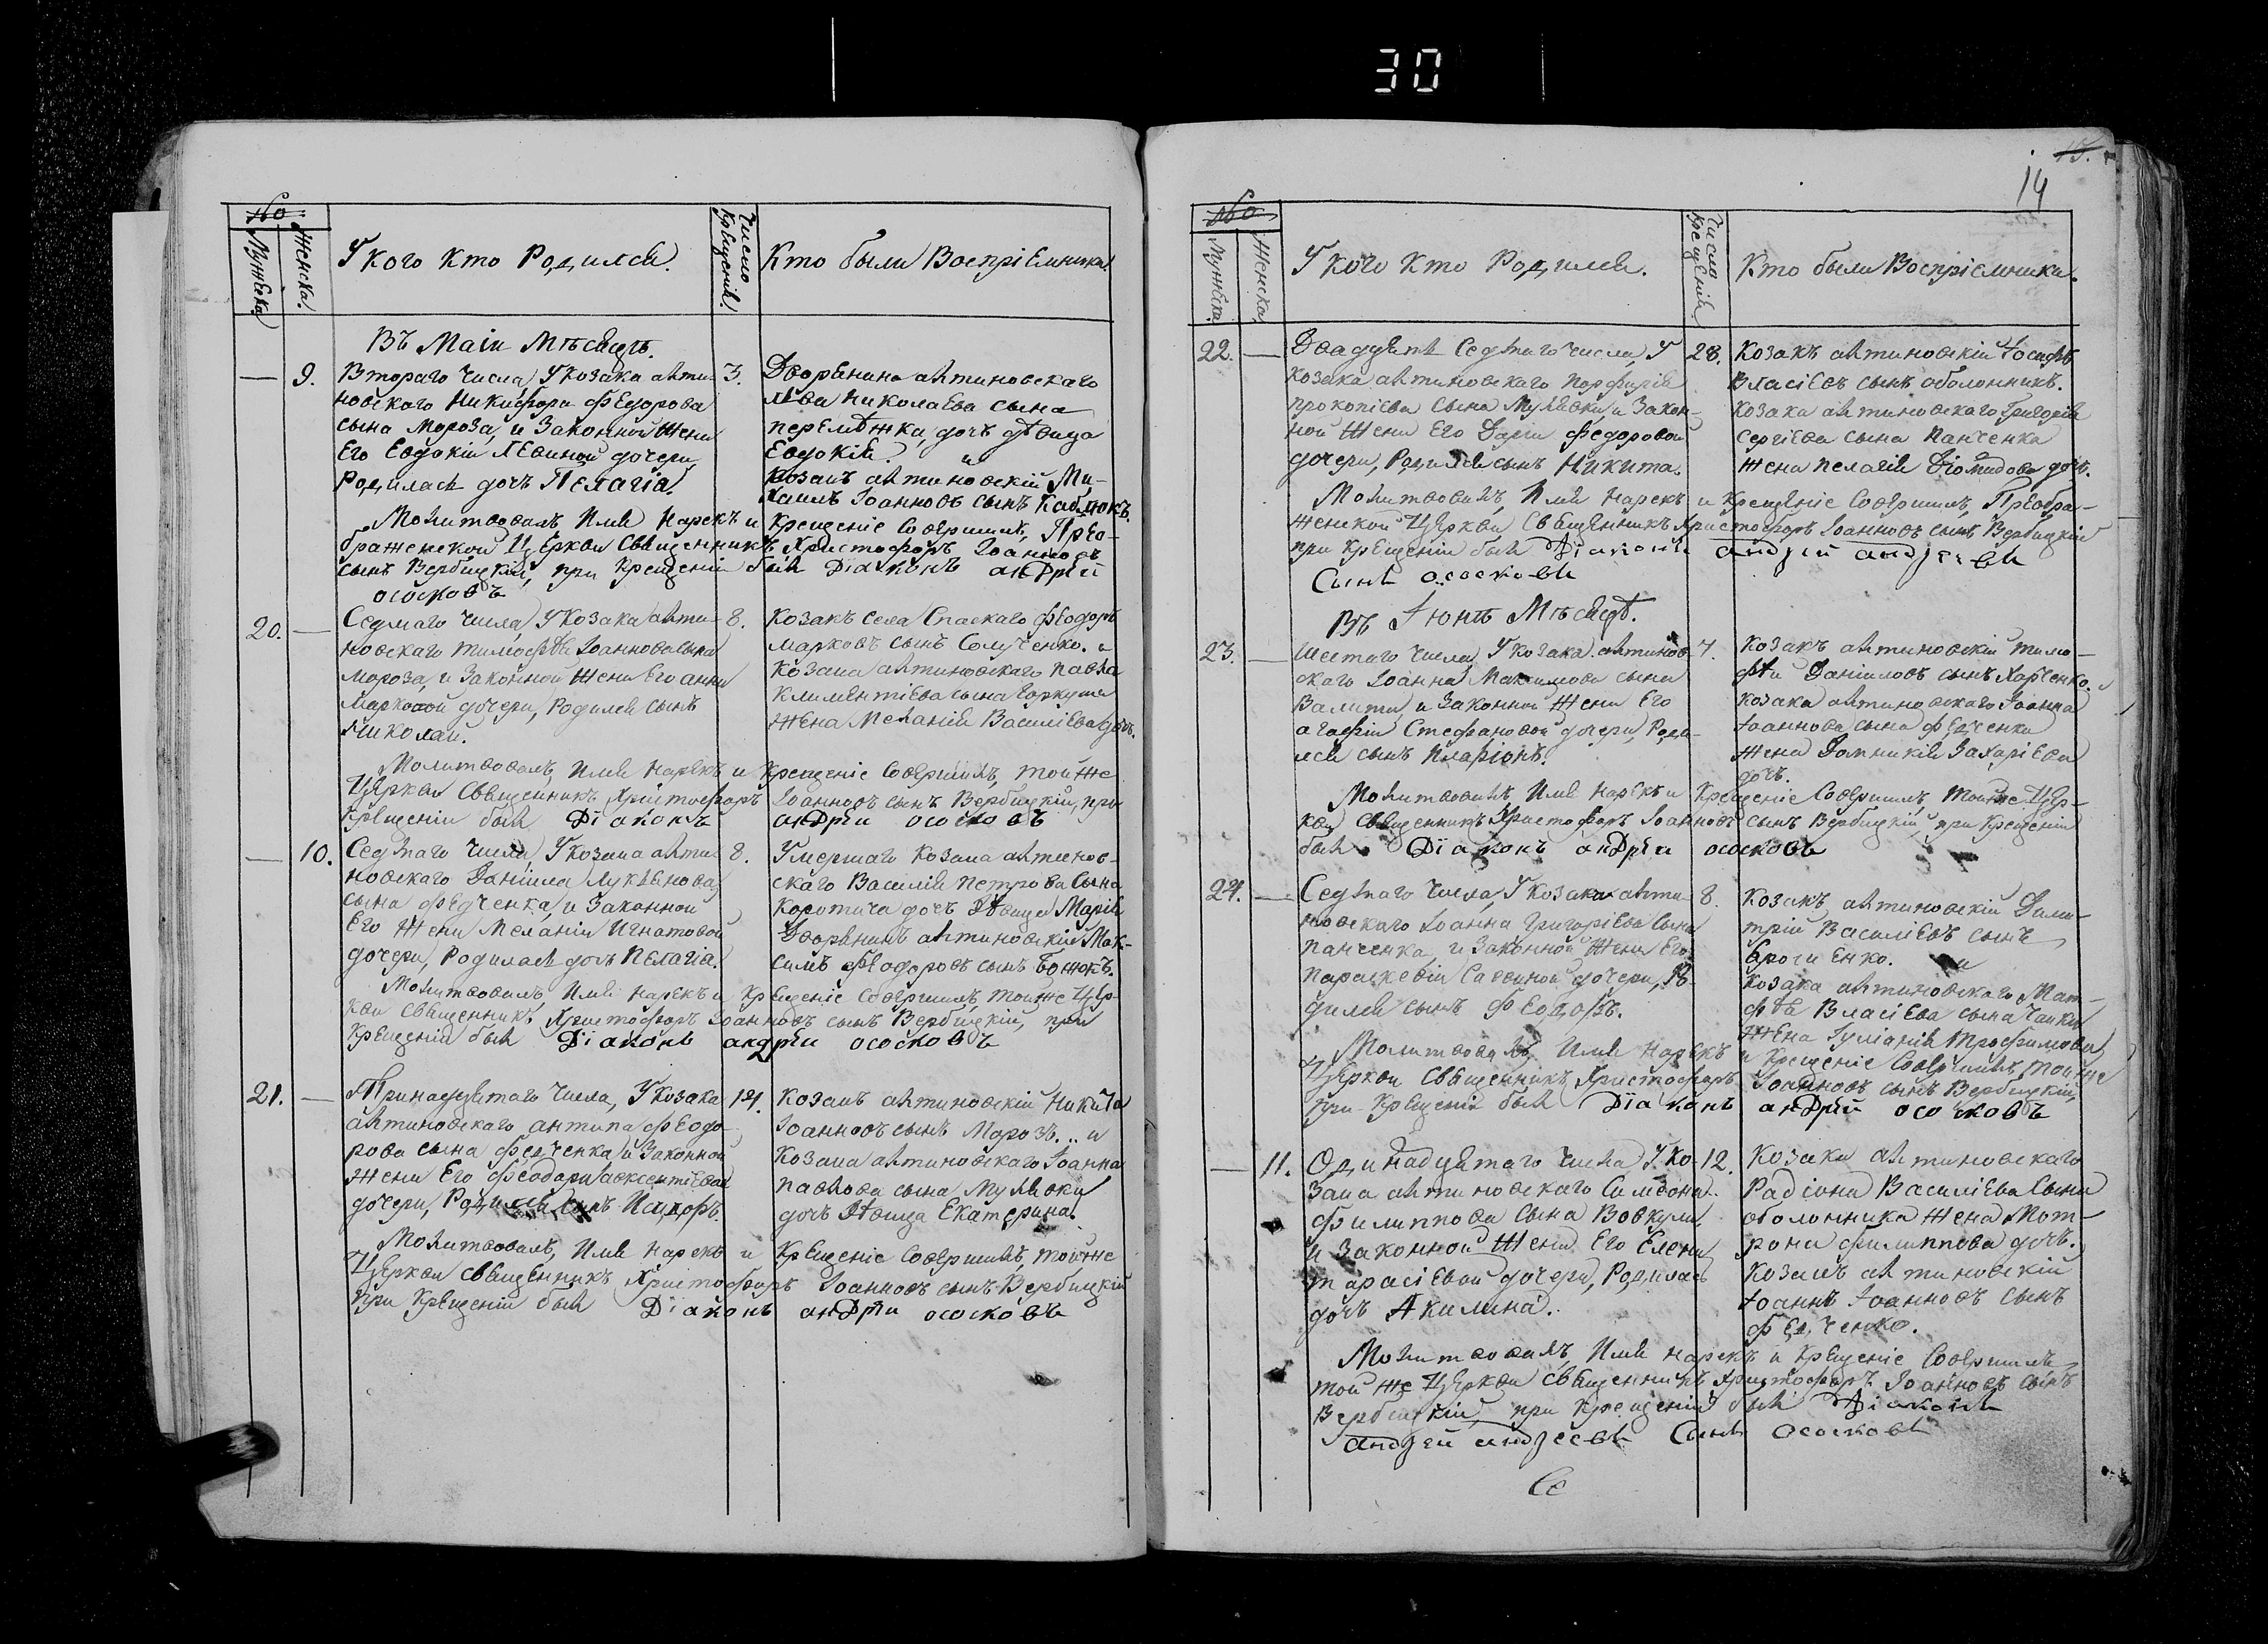 30
№
Мужеска.
Женска.
У кого кто Родился.
Число Крещенія.
Кто были Воспріемники.
Въ Маіи Мѣсяцѣ.
9.
Втораго числа, У козака алти-
новскаго Никифора Федорова
сына Мороза, и Законной Жени
Его Евдокіи Лѣвиной дочери
Родилася дочъ Пелагіа.
3.
Дворянина алтиновскаго
Лѣва Николаева сына
Перемѣжка, дочъ дѣвица
Евдокія. и
Козакъ алтиновскій Ми-
хаилъ Іоанновъ сынъ
Молитвовалъ, Имя Нарекъ и Крещеніе Совершилъ, Прео-
браженской Церкви Священникъ Христофоръ Іоанновъ
сынъ Вербицкій, при Крещеніи былъ Діаконъ андрѣй
ососковъ
20.
Седмаго числа, У козака алти-
новскаго Тимофѣя Іоаннова сына
Мороза, и Законной Жени Его анни
Марковой дочери, Родился сынъ
Николай.
8.
Козакъ села Спаскаго Феодоръ
Марковъ сынъ Солученко. и
Козака алтиновскаго Павла
Климентіева сына
Жена Меланія Василіева дочъ.
Молитвовалъ, Имя Нарекъ и Крещеніе Совершилъ, тойже
Церкви Священникъ Христофоръ Іоанновъ сынъ Вербицкій, при
Крещеніи былъ Діаконъ андрѣй ососковъ
10.
Седмаго числа, У козака алти-
новскаго Даніила Лукянова
сына Федченка, и Законной
Его Жени Меланіи Игнатовой
дочери, Родилася дочъ Пелагіа.
8.
Умершаго Козака алтинов-
скаго Василія Петрова сына
Коротича дочъ Дѣвица Марія
Дворянинъ алтиновскій Мак-
симъ Феодоровъ сынъ Божокъ.
Молитвовалъ, Имя Нарекъ и Крещеніе Совершилъ, тойже Цер-
кви Священникъ Христофоръ Іоанновъ сынъ Вербицкій, при
Крещеніи былъ Діаконъ андрѣй ососковъ
21.
Тринадцятаго числа, У козака
алтиновскаго антипа Феодо-
рова сына Федченка, и Законной
Жени Его Феодори Авксентіевой
дочери, Родился сынъ Исидоръ.
14.
Козакъ алтиновскій Никита
Іоанновъ сынъ Морозъ. и
Козака алтиновскаго Іоанна
Павлова сына Мулявки
дочъ Дѣвица Екатерина.
Молитвовалъ, Имя Нарекъ и Крещеніе Совершилъ, тойже
Церкви Священникъ Христофоръ Іоанновъ сынъ Вербицкій
при Крещеніи былъ Діаконъ андрѣй ососковъ
15.
14
№
Мужеска.
Женска.
У кого кто Родился.
Число Крещенія.
Кто были Воспріемники.
22.
Двадцять Седмаго числа, У
козака алтиновскаго Порфирія
Прокопіева сына Мулявки, и Закон-
ной Жени Его Даріи Федоровой
дочери, Родился сынъ Никита.
28.
Козакъ алтиновскій Іосифъ
Власіевъ сынъ оболонникъ.
Козака алтиновскаго Григорія
Сергіева сына Панченка
Жена Пелагія Діомидова дочъ.
Молитвовалъ, Имя Нарекъ и Крещеніе Совершилъ, Преобра-
женской Церкви Священникъ Христофоръ Іоанновъ сынъ Вербицкій
при Крещеніи былъ Діаконъ андрей андреевъ
Сынъ ососковъ
Въ Іюнѣ Мѣсяцѣ.
23.
Шестаго числа, У козака алтинов-
скаго Іоанна Максимова сына
Валита, и Законной Жени Его
агафіи Стефановой дочери, Роди-
лся сынъ Иларіонъ.
7.
Козакъ алтиновскій Тимо-
фѣй Даніиловъ сынъ Харченко. и
козака алтиновскаго Іоанна
Іоаннова сына Федченка
Жена Домникія Захаріева
дочъ.
Молитвовалъ, Имя Нарекъ и Крещеніе Совершилъ, тойже Цер-
кви Священникъ Христофоръ Іоанновъ сынъ Вербицкій при Крещеніи
былъ Діаконъ андрѣй ососковъ
24.
Седмаго числа, У козака алти-
новскаго Іоанна Григоріева сына
Панченка, и Законной Жени Его
Параскевіи Саввиной дочери, Ро-
дился сынъ Феодоръ.
8.
Козакъ алтиновскій Дими-
трій Василіевъ сынъ
и
Козака алтиновскаго Мат-
фѣя Власіева сына Чайки
Жена Іуліанія Трофимова
Молитвовалъ, Имя Нарекъ и Крещеніе Совершилъ, тойже
Церкви Священникъ Христофоръ Іоанновъ сынъ Вербицкій,
при Крещеніи былъ Діаконъ андрѣй ососковъ
11.
Одинадцятаго числа, У ко-
зака алтиновскаго Симеона
Филиппова сына Вовкули,
и Законной Жени Его Елени
Тарасіевой дочери, Родилась
дочъ Акилина.
12.
Козака алтиновскаго
Радіона Василіева сына
оболонника Жена Мот-
рона Филиппова дочъ.
Козакъ алтиновскій
Іоаннъ Іоанновъ сынъ
Федченко.
Молитвовалъ, Имя Нарекъ и Крещеніе Совершилъ
тойже Церкви Священникъ Христофоръ Іоанновъ сынъ
Вербицкій, при Крещеніи былъ Діаконъ
андрей андреевъ Сынъ Ососковъ